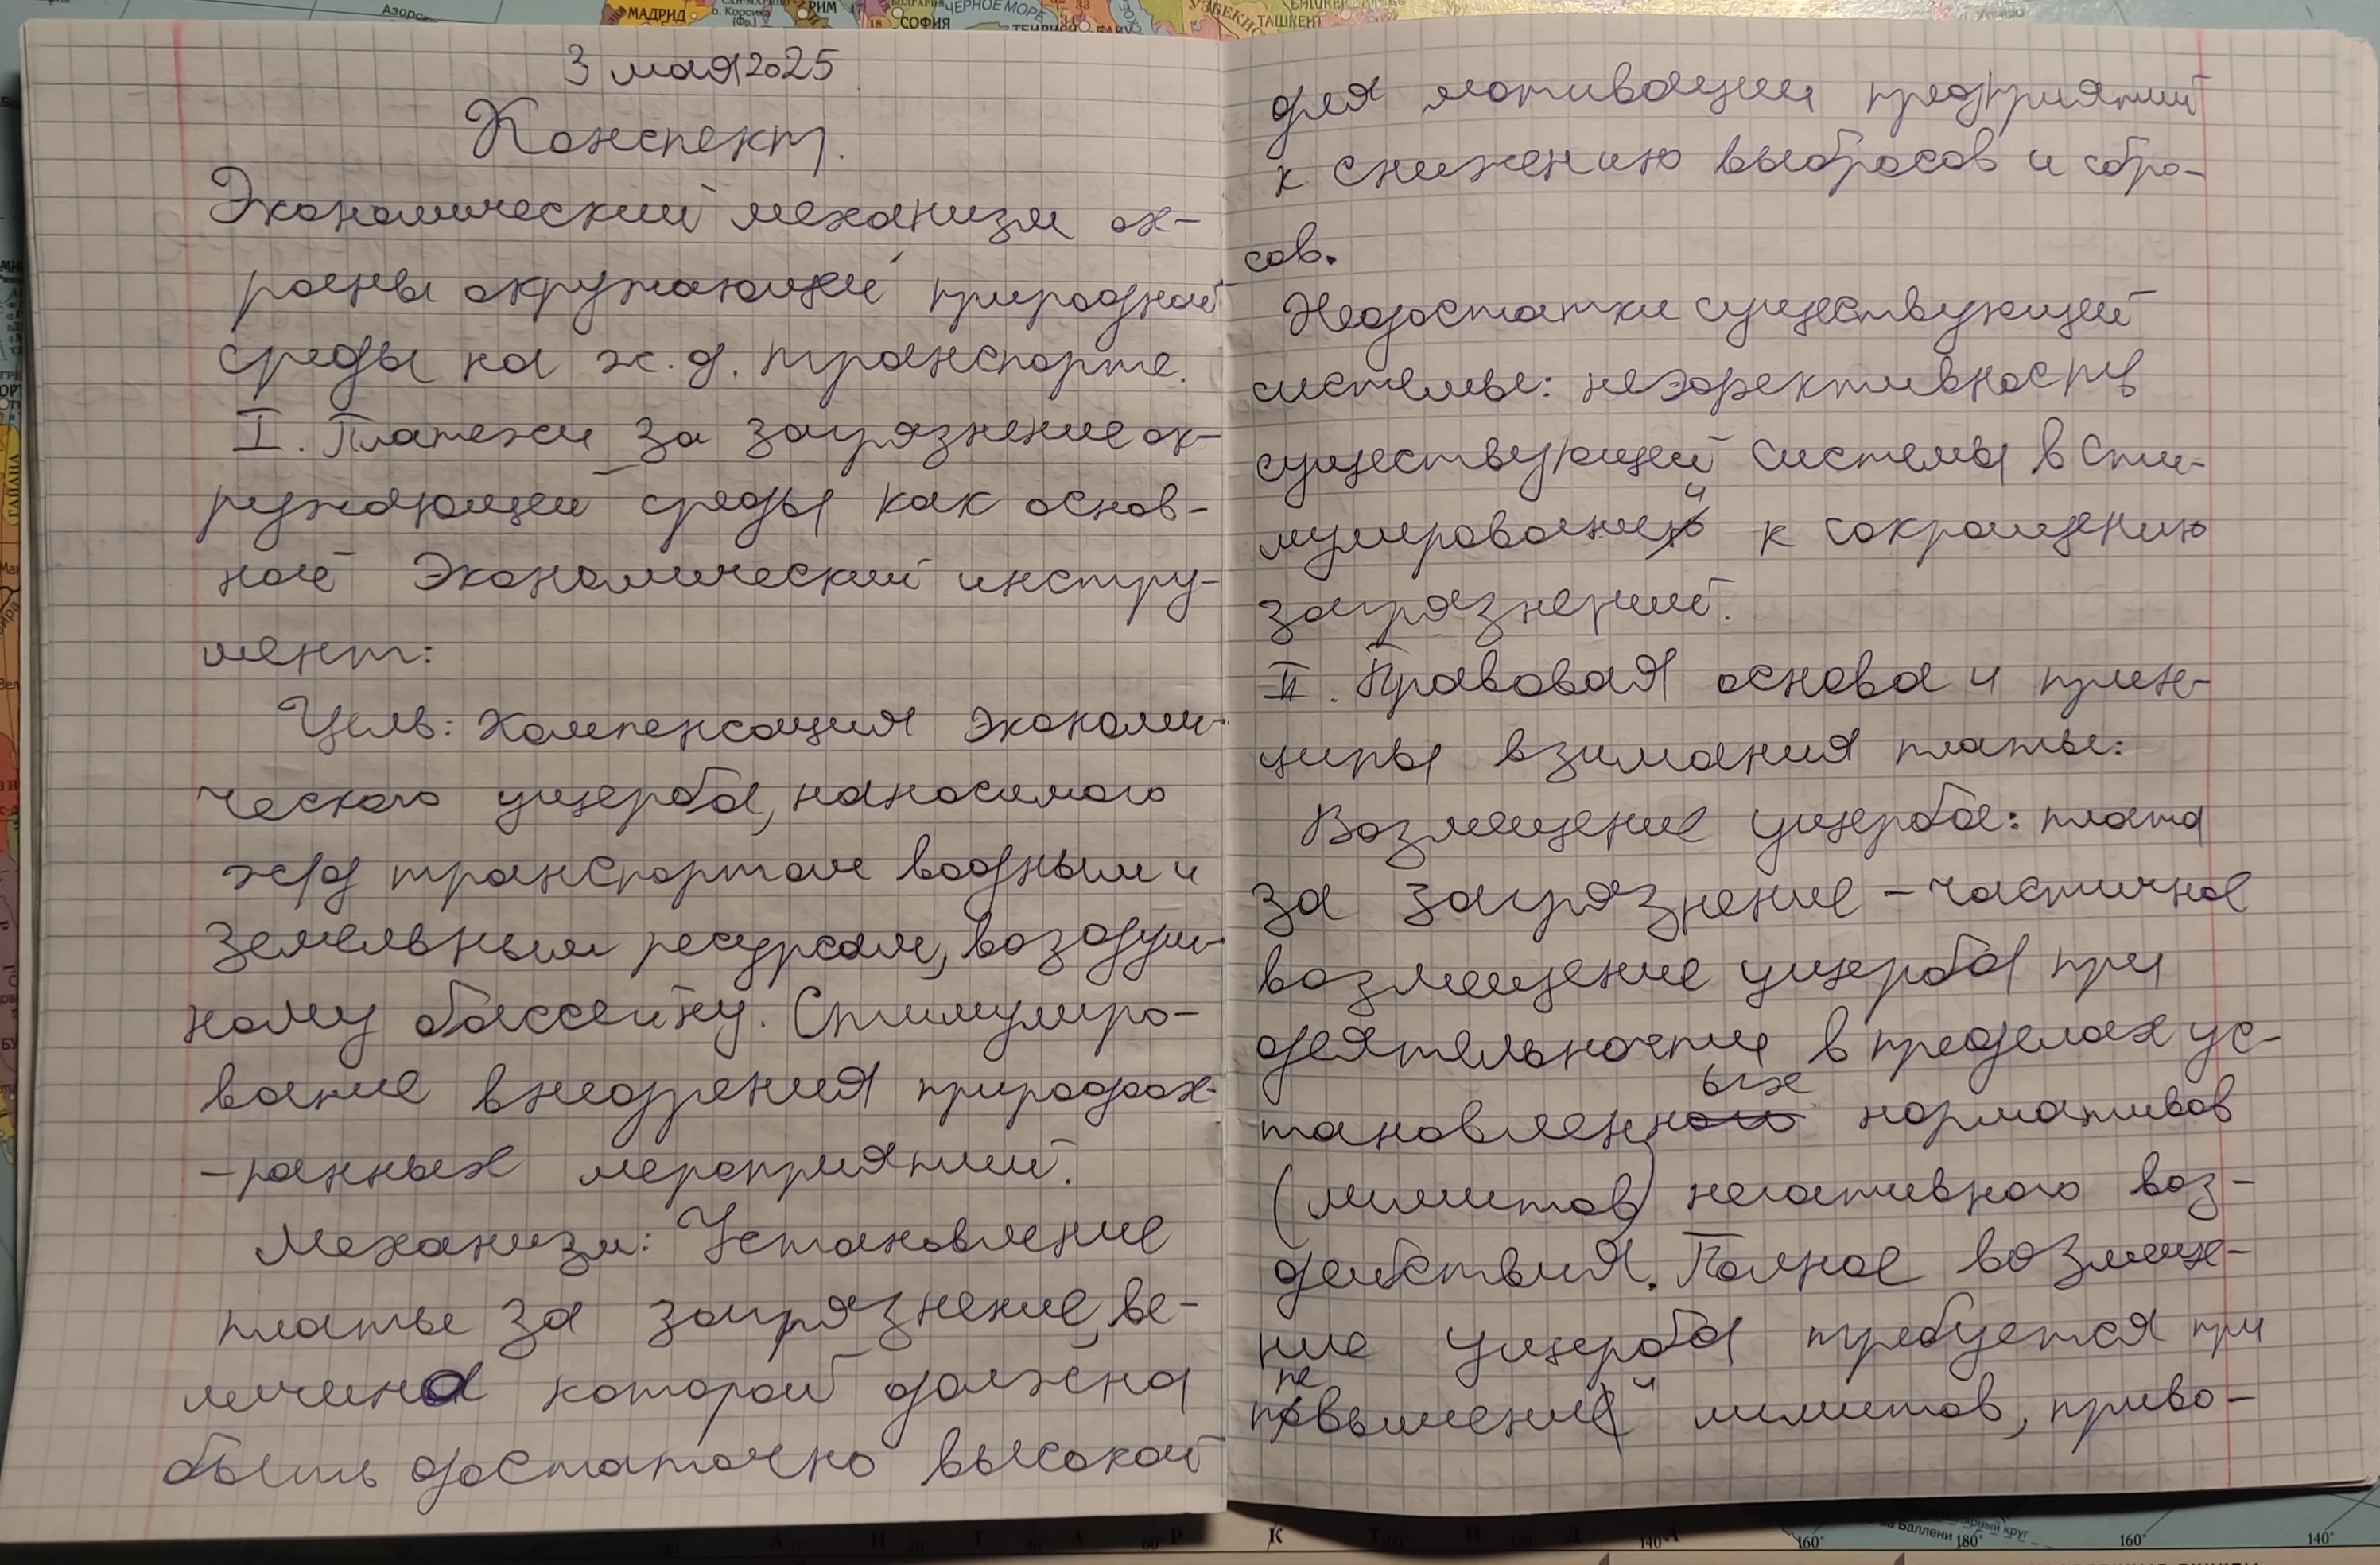 МАДРИД
РИМ
СОФИЯ
ЧЕРНОЕ МОРЕ
БАКУ
ТАШКЕНТ
3 мая 2025
Конспект.
Экономический механизм ох-
раены окружающей природной
среды на ж.д. транспорте.
I. Платежи за загрязнение ок-
ружающей среды как основ-
ной Экономический инстру-
мент:
Цель: Компенсация экономи-
ческого ущерба, наносимого
ж/д транспортом водным и
земельным ресурсам, воздуш-
ному бассейну. Стимулиро-
вание внедрения природоох-
-ранных мероприятий.
Механизм: Установление
платы за загрязнение, ве-
личина которой должна
быть достаточно высокой
для мотивации предприятий
к снижению выбросов и сбро-
сов.
Недостатки существующей
системы: неэфективность
существующей системы в сти-
мулировании к сокращению
загрязнений.
II. Правовая основа и прин-
ципы взимания платы:
Возмещение ущерба: плата
за загрязнение - частичное
возмещение ущерба при
деятельности в пределах ус-
тановленных нормативов
(лимитов) негативного воз-
действия. Полное возмеще-
ние ущерба требуется при
превышений лимитов, приво-
А Н Т А Р К Т И Д А
160°
180°
160°
140°